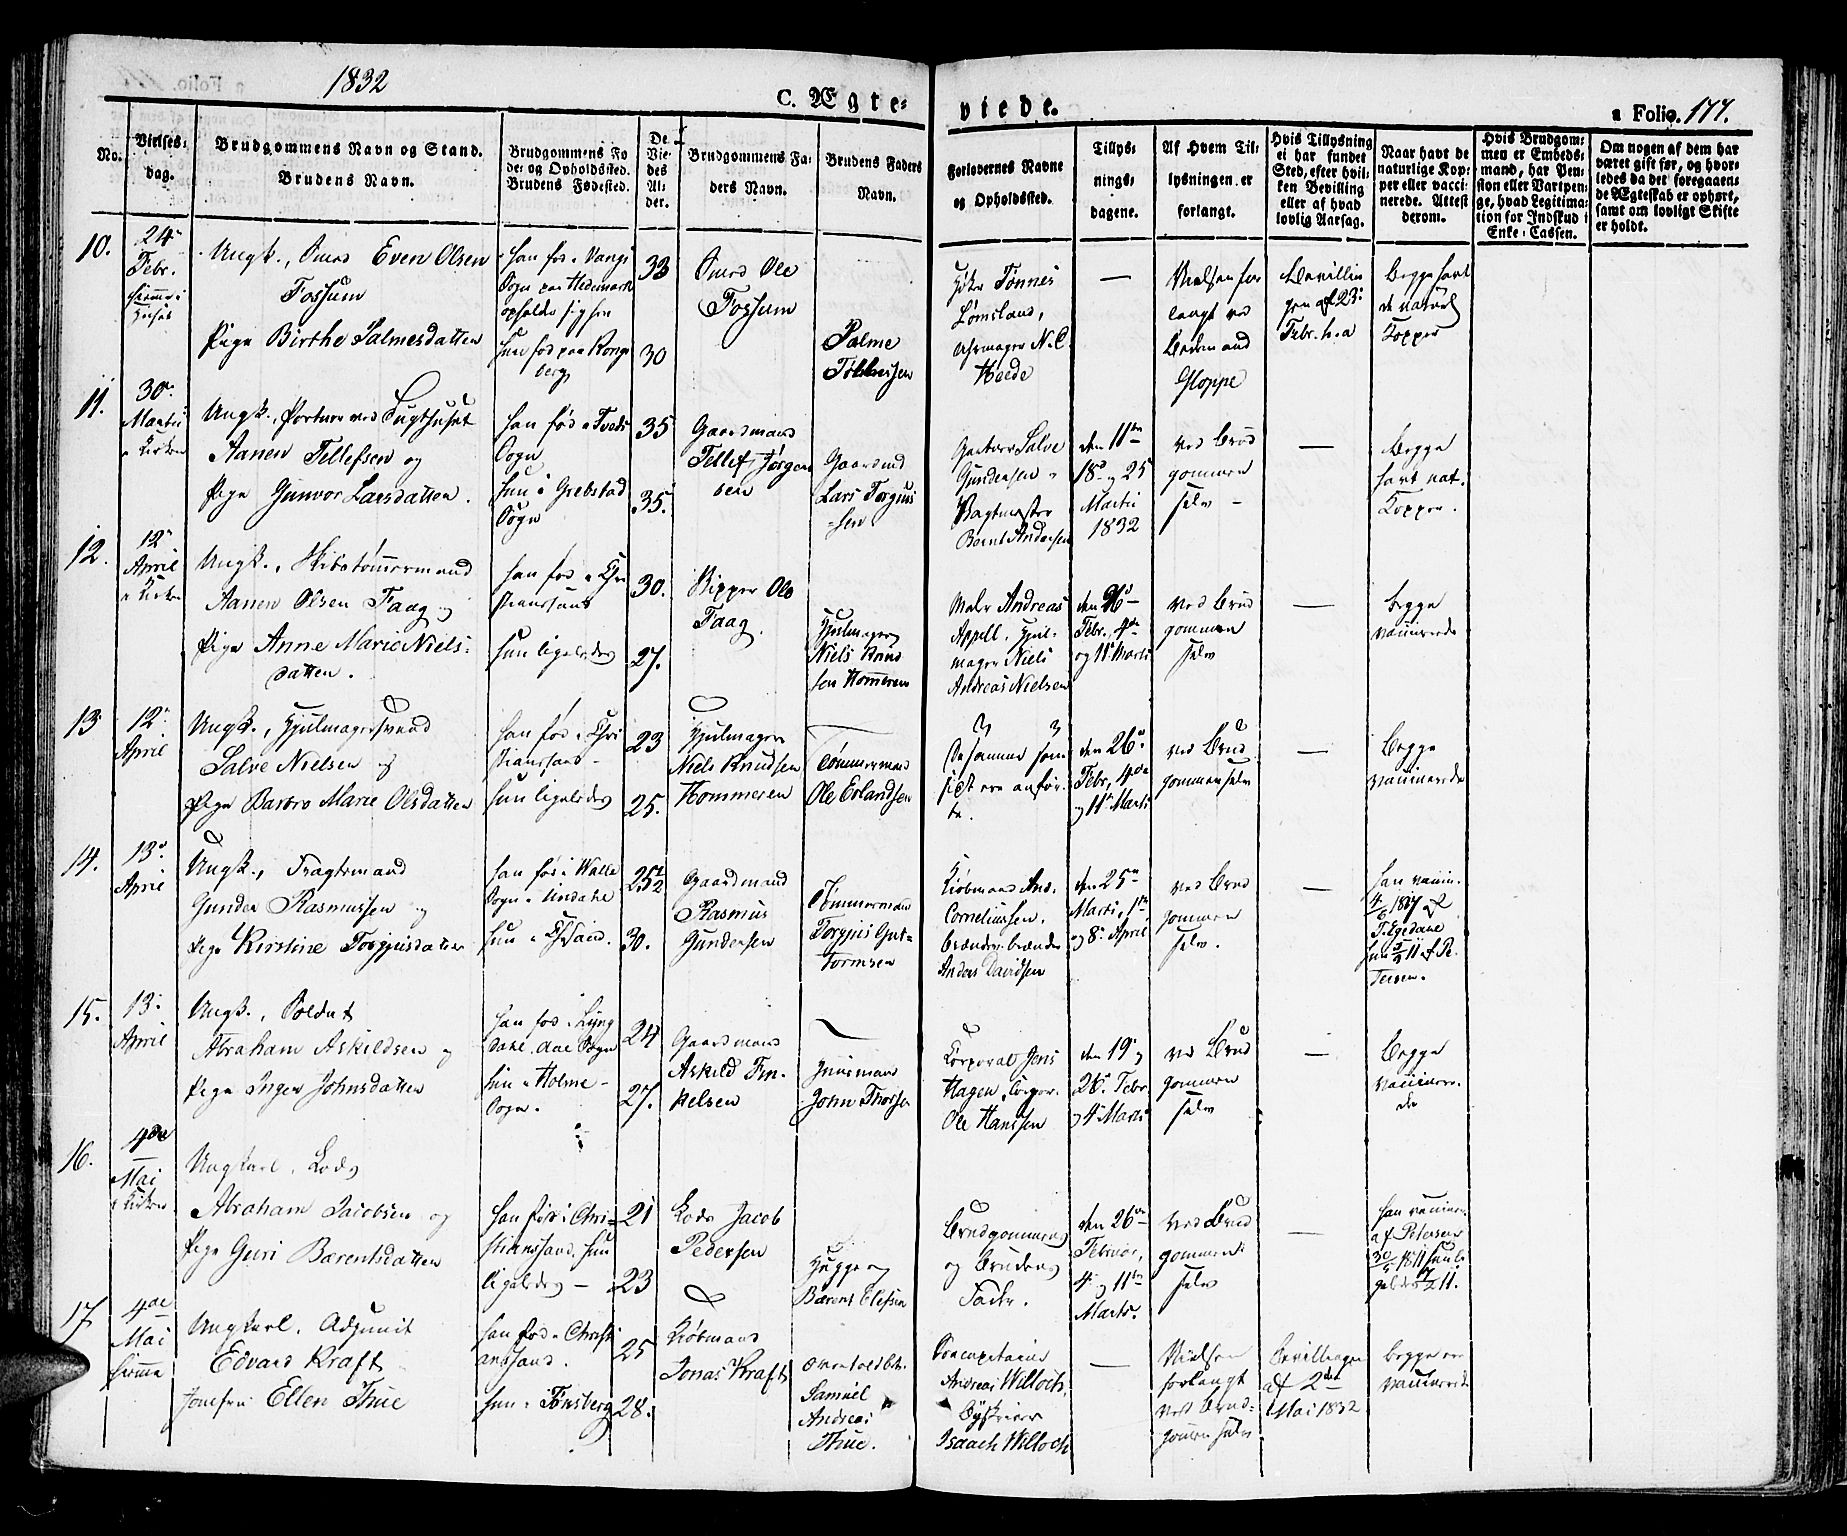 1832
C. Ægte-
viede.
a Folio. 177.
No.
Vielses-
dag.
Brudgommens Navn og Stand.
Brudens Navn.
Brudgommens Fø
de- og Opholdssted.
Brudens Fødested.
De
Vie-
des
Al-
der.
Brudgommens Fa-
ders Navn.
Brudens Faders
Navn.
Forlovernes Navne
og Opholdssted.
Tillys-
nings-
dagene.
Af Hvem Til-
lysningen er
forlangt.
Hvis Tillysning
ei har fundet
Sted, efter hvil-
ken Bevilling
eller af hvad
lovlig Aarsag.
Naar havt de
naturlige Kop-
per eller vacci-
nerede. Attest
derom.
Hvis Brudgom-
men er Embeds-
mand, har Pen-
sion eller Vartpen-
ge, hvad Legitima-
tion for Indskud i
Enke-Cassen.
Om nogen af dem har
været gift før, og hvor-
ledes da det foregaaen-
de Ægteskab er ophørt,
samt om lovligt Skifte
er holdt.
10.
24
Febr.
hjemme i
Huset
Ungk., Even Olsen
Fossum
Pige Birthe Palmesdatter
han fød i Vangs
Sogn paa Hedemark
opholder sig her
hun fød paa Kongs
berg
33
30
Ole
Fossum
Palme
Tønnes
Lømsland,
Uhrmager N. C.
Hoede
—
Vielsen for
langt ved
Bedemand
Gloppe
Bevillin
gen af 23
Febr. h. a
Begge havt
de naturl
Kopper
11.
30
Martii
i Kirken
Ungk., Portner ved Tugthuset
Aanen Tellefsen og
Pige Gunvor Larsdatter.
han fød i Tveds
Sogn
hun i Grebstad
Sogn
35
35.
Gaardmand
Tellef Jørgen
sen
Gaardmd
Lars Torgius
sen
Salve
Gundersen
Vagtmester
Bernt Andersen
den 11te
18d og 25
Martii
1832
ved Brud
gommen
selv
—
Begge
havt nat.
Kopper.
12.
12
April
i Kirken
Ungk., Skibstømmermand
Aanen Olsen Faag og
Pige Anne Marie Niels-
datter.
han fød i Chri
stianssand
hun ligeledes
30.
27.
Ole
Faag.
Hjulmager
Niels Knud
sen Hommeren
Maler Andreas
Appell, Hjul-
mager Niels
Andreas Nielsen
den 26
Febr., 4de
og 11te Marts
ved Brud
gommen
selv
—
begge
vaccinerede
13
12
April
Ungk., Hjulmagersvend
Salve Nielsen og
Pige Barbro Marie Olsdatter
han fød i Chri
stianssand
hun ligeledes
23
25.
Hjulmager
Niels Knudsen
Hommeren
Tømmermand
Ole Erlandsen
De samme som
sidst ere anfør-
te.
den 26
Febr., 4de
og 11te Marts
ved Brud
gommen selv
—
Begge
vaccinerede
14.
13
April
Ungk., Fragtemand
Gunder Rasmussen og
Pige Kirstine Torgiusdatter
han fød i Walle
Sogn i Undahl
hun i ChrSand.
25½
30.
Gaardmand
Rasmus
Gundersen
Tømmermand
Torgius Gut-
tormsen
Kiøbmand And.
Corneliussen,
Anders Davidsen
den 25
Marts, 1te
og 8 April
ved Brud
gommen
selv.
—
han vaccin.
15.
13
April
Ungk., Soldat
Abraham Askildsen og
Pige Inger Johnsdatter
han fød i Lyng
dahl, Aae Sogn
hun i Holme
Sogn.
24
27.
Gaardmand
Askild Tin-
kelsen
Huusmand
John Thorsen
Corporal Jens
Hagen, Corpor.
Ole Hanssen
den 19 og
26 Febr
og 4 Marts
ved Brud
gommen
selv
—
Begge
vaccinere-
de
16.
4de
Mai
i Kirken
Ungkarl, Lods
Abraham Jacobsen og
Pige Guri Bærentsdatter
han fød i Chri-
stianssand, hun
ligeledes —
21
23
Lods Jacob
Pedersen
Bærent Elefsen
Brudgommens
og Brudens
Fader.
den 26de
Februar,
4 og 11te
Marts.
ved Brud
gommen
selv
—
han vaccine-
af Petersen
17
4de
Mai
hjemme
Ungkarl, Adjunct
Edvard Kraft
Jomfru Ellen Thue
han fød i Christi
anssand.
hun i Tønsberg
25
28.
Kiøbmand
Jonas Kraft
Overtoldbet.
Samuel
Andreas
Thue.
Andreas Willoch,
Isaach Willoch
—
Vielsen
forlangt
ved Brud-
gommen selv
Bevillingen
af 2den
Mai 1832
begge ere
vaccinerede